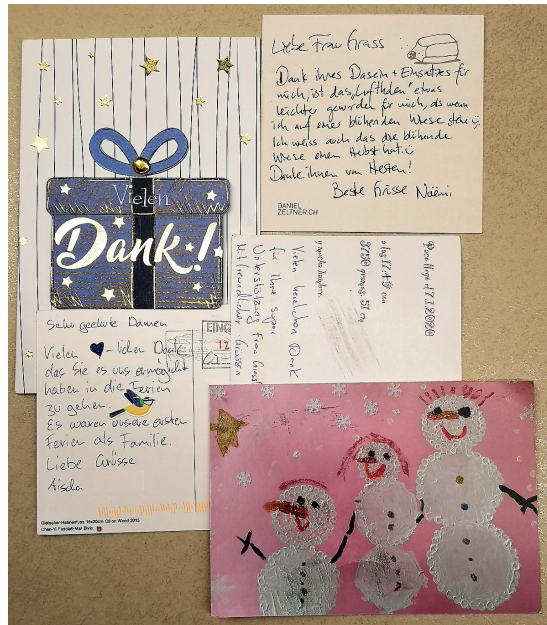 Vielen
Dank!
Liebe Frau Grass
Dank ihres Dasein + Einsatzes für
mich, ist das "Lufthden" etwas
leichter geworden für mich, als wenn
ich auf einer blühenden Wiese stehe
Ich weiss auch das die blühende
Wiese einen Herbst hat
Danke ihnen von Herzen!
Beste Grüsse Naëmi
DANIEL
ZELTNER.CH
Vielen herzlichen Dank
für Ihre super
Unterstützung Frau Grass
Mit freundlichen Grüssen
Sehr geehrte Damen
Vielen -lichen Dank
das Sie es uns ermöglicht
haben in die Ferien
zu gehen.
Es waren unsere ersten
Ferien als Familie.
Liebe Grüsse
Aischa
EING
12